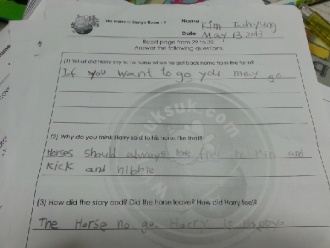 Name Kim
Date May 13
Read page from 29 to 39.
Answer the following questions.
(1) What did Harry say to his horse when he got back home from the farm?
If you want to go you may go
(2) Why do you think Harry said to his horse like that?
Horses should always be free to run and
kick and nibble
(3) How did the story end? Did the horse leave? How did Harry feel?
The Horse no go. Harry is